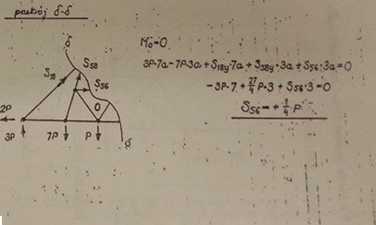 przekrój δ-δ
δ
S₅₈
S₁₈
S₅₆
O
2P
3P
7P
P
δ
M₀=0
3P·7a-7P·3a+S₁₈y·7a+S₅₈y·3a+S₅₆·3a=0
-3P·7+27/4 P·3+S₅₆·3=0
S₅₆=+1/4 P